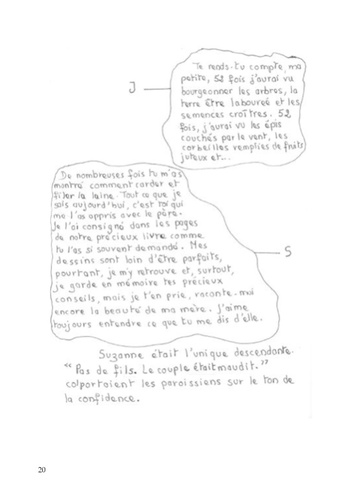 Te rends-tu compte, ma
petite, 52 fois j'aurai vu
bourgeonner les arbres, la
terre être labourée et les
semences croîtres. 52
fois, j'aurai vu les épis
couchés par le vent, les
corbeilles remplies de fruits
juteux et...
J
De nombreuses fois tu m'as
montré comment carder et
filer la laine. Tout ce que je
sais aujourd'hui, c'est toi qui
me l'as appris avec le père.
Je l'ai consigné dans les pages
de notre précieux livre comme
tu l'as si souvent demandé. Mes
dessins sont loin d'être parfaits,
pourtant, je m'y retrouve et, surtout,
je garde en mémoire tes précieux
conseils, mais je t'en prie, raconte-moi
encore la beauté de ma mère. J'aime
toujours entendre ce que tu me dis d'elle.
S
Suzanne était l'unique descendante.
"Pas de fils. Le couple était maudit."
colportaient les paroissiens sur le ton de
la confidence.
20